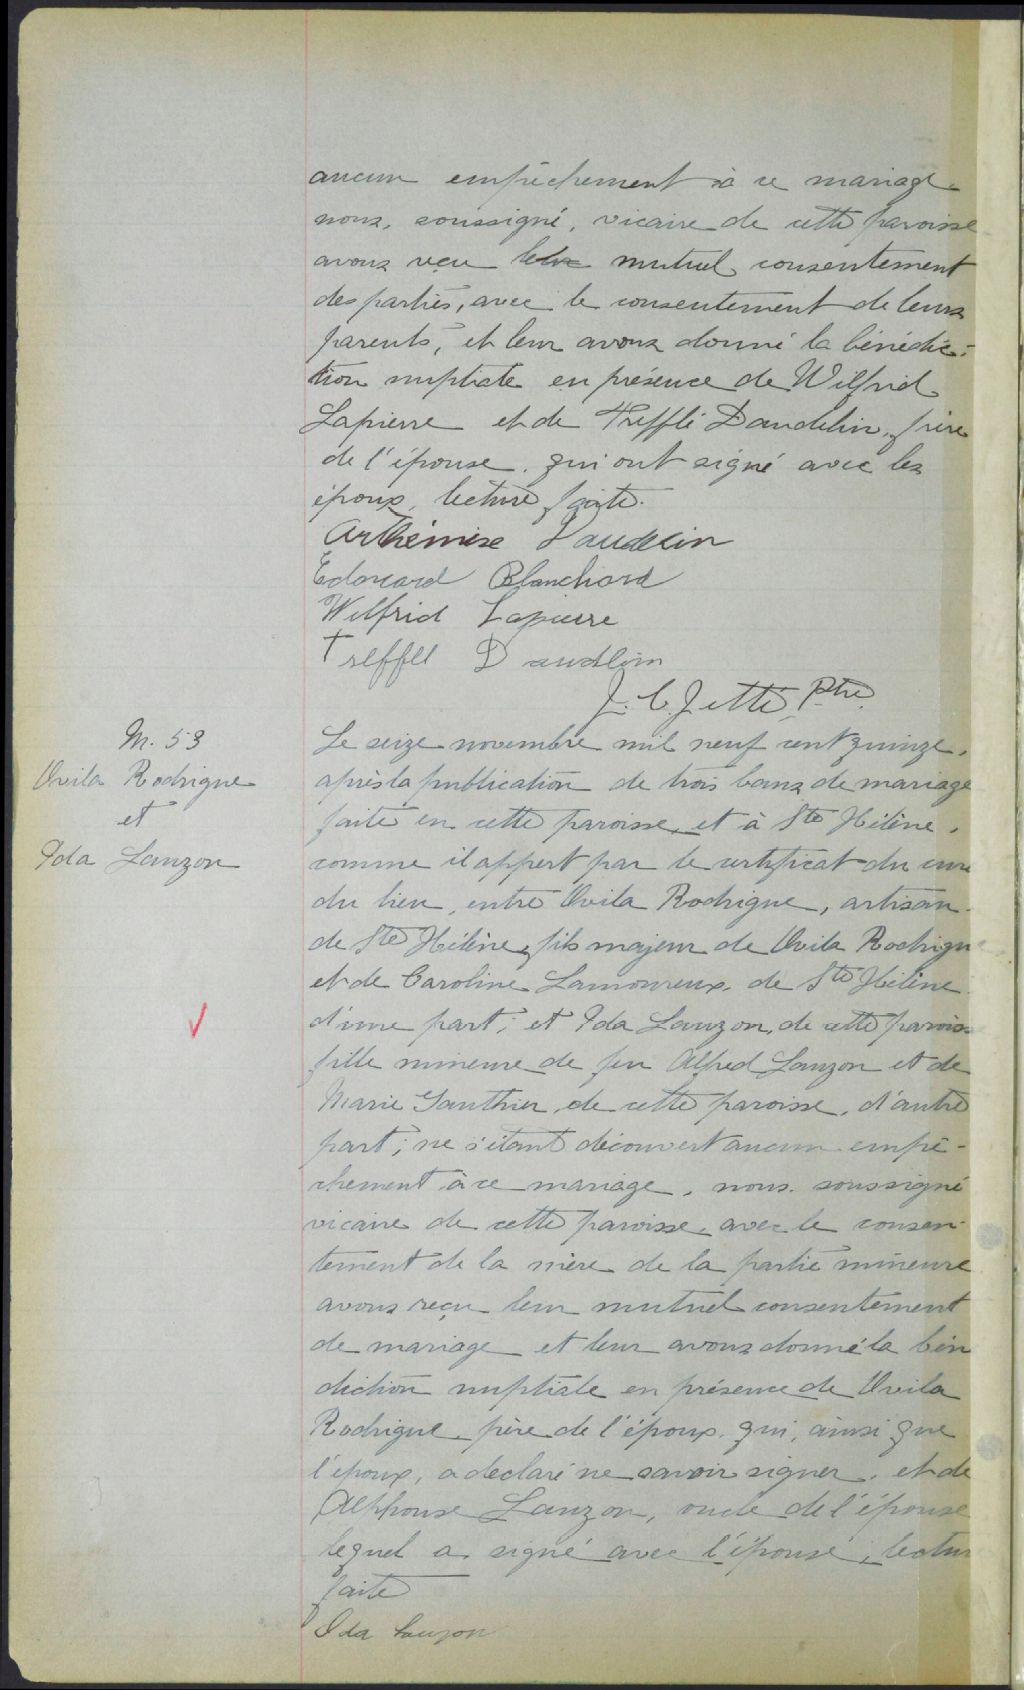 aucun empêchement à ce mariage
nous, soussigné, vicaire de cette paroisse
avons reçu leur mutuel consentement
des parties, avec le consentement de leurs
parents, et leur avons donné la bénédic-
tion nuptiale en présence de Wilfrid
Lapierre et de Trefflé Daudelin, frère
de l'épouse, qui ont signé avec les
époux, lecture faite.
Arthémise Daudelin
Edouard Blanchard
Wilfrid Lapierre
Trefflé Daudlin
J. C. Jetté, Ptre.
M. 53
Ovila Rodrigue
et
Ida Lauzon
Le seize novembre mil neuf cent quinze,
après la publication de trois bans de mariage
faite en cette paroisse, et à Ste Hélène,
comme il appert par le certificat du curé
du lieu, entre Ovila Rodrigue, artisan
de Ste Hélène, fils majeur de Ovila Rodrigue
et de Caroline Lamoureux, de Ste Hélène
d'une part; et Ida Lauzon, de cette paroisse
fille mineure de feu Alfred Lauzon et de
Marie Gauthier, de cette paroisse, d'autre
part; ne s'étant découvert aucun empê-
chement à ce mariage, nous soussigné
vicaire de cette paroisse, avec le consen-
tement de la mère de la partie mineure
avons reçu leur mutuel consentement
de mariage et leur avons donné la béné
diction nuptiale en présence de Ovila
Rodrigue, père de l'époux, qui, ainsi que
l'époux, a déclaré ne savoir signer, et de
Alphonse Lauzon, oncle de l'épouse
lequel a signé avec l'épouse, lecture
faite
Ida Lauzon